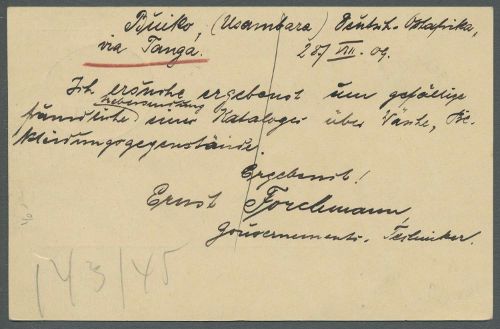 Buiko, (Usambara) Deutsch-Ostafrika,
via Tanga. 28/VIII. 09.
Ich ersuche ergebenst um gefällige
Uebersendung
freundliche eines Kataloges über Wäsche, Be-
kleidungsgegenstände.
Ergebenst!
Ernst Forchmann,
Gouvernements-Techniker.
143/45